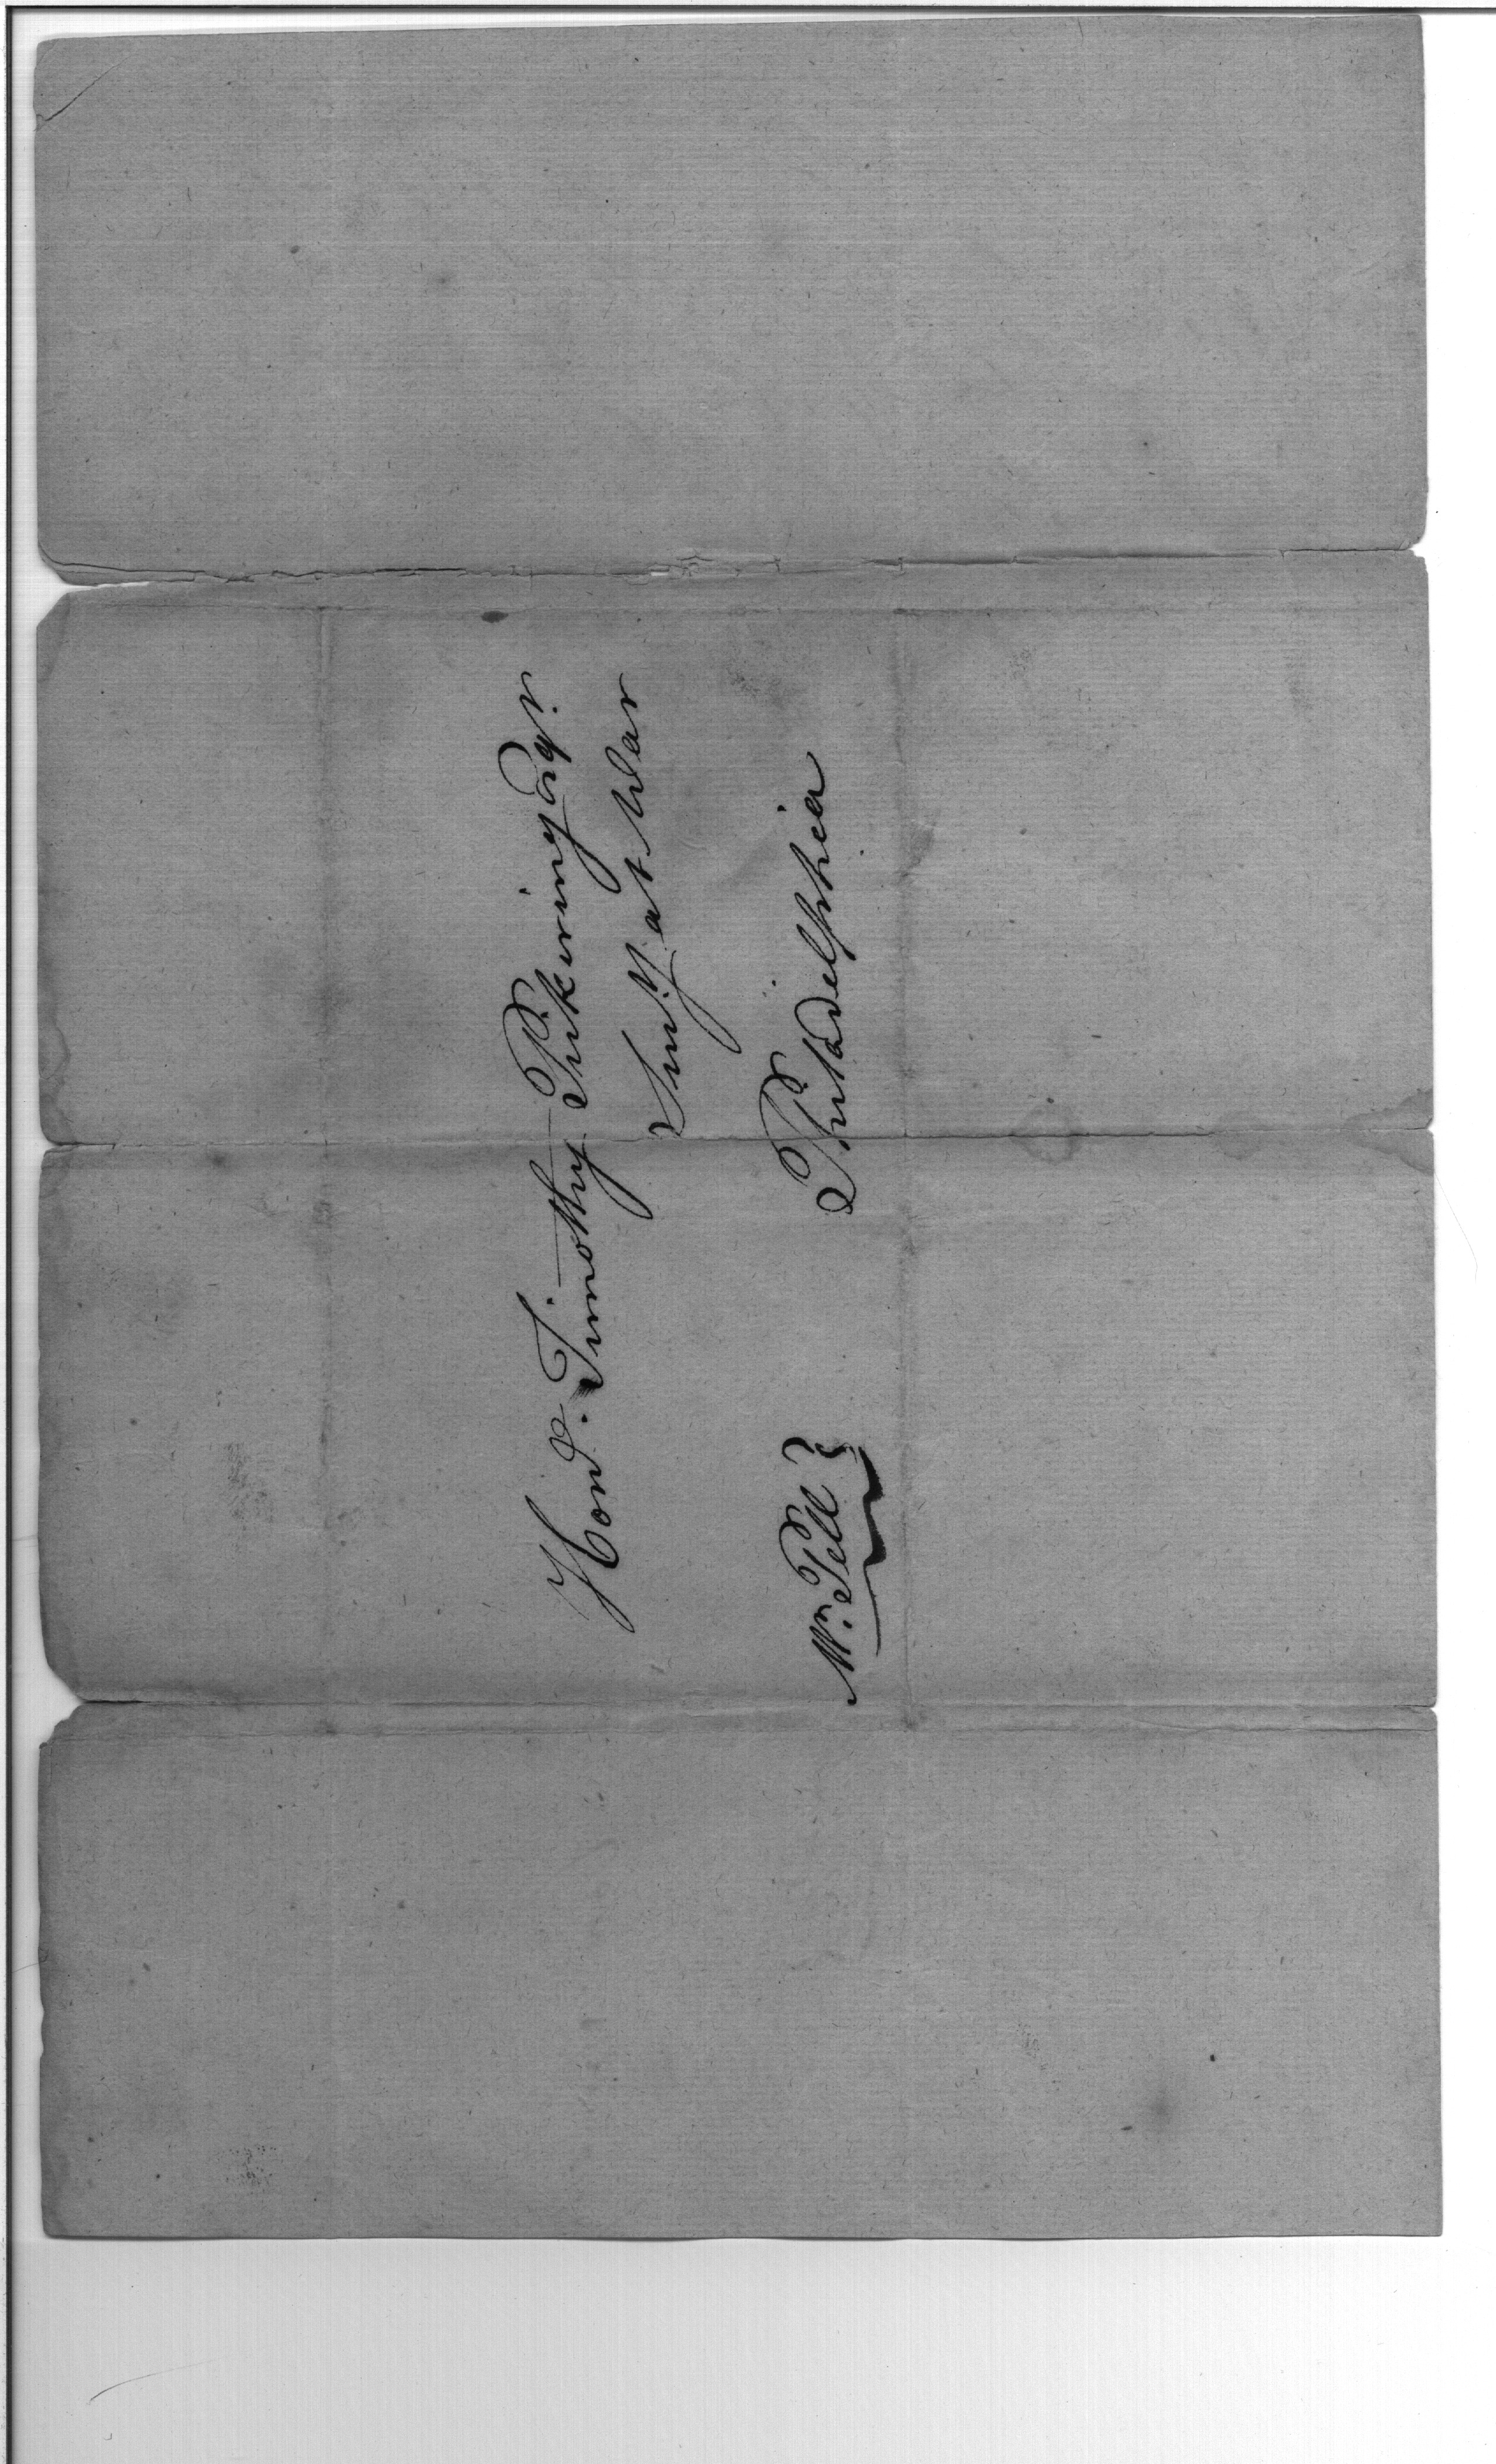 Hond. Timothy Pickering Esqr.
Secy. at War
Philadelphia
Mr. Pell